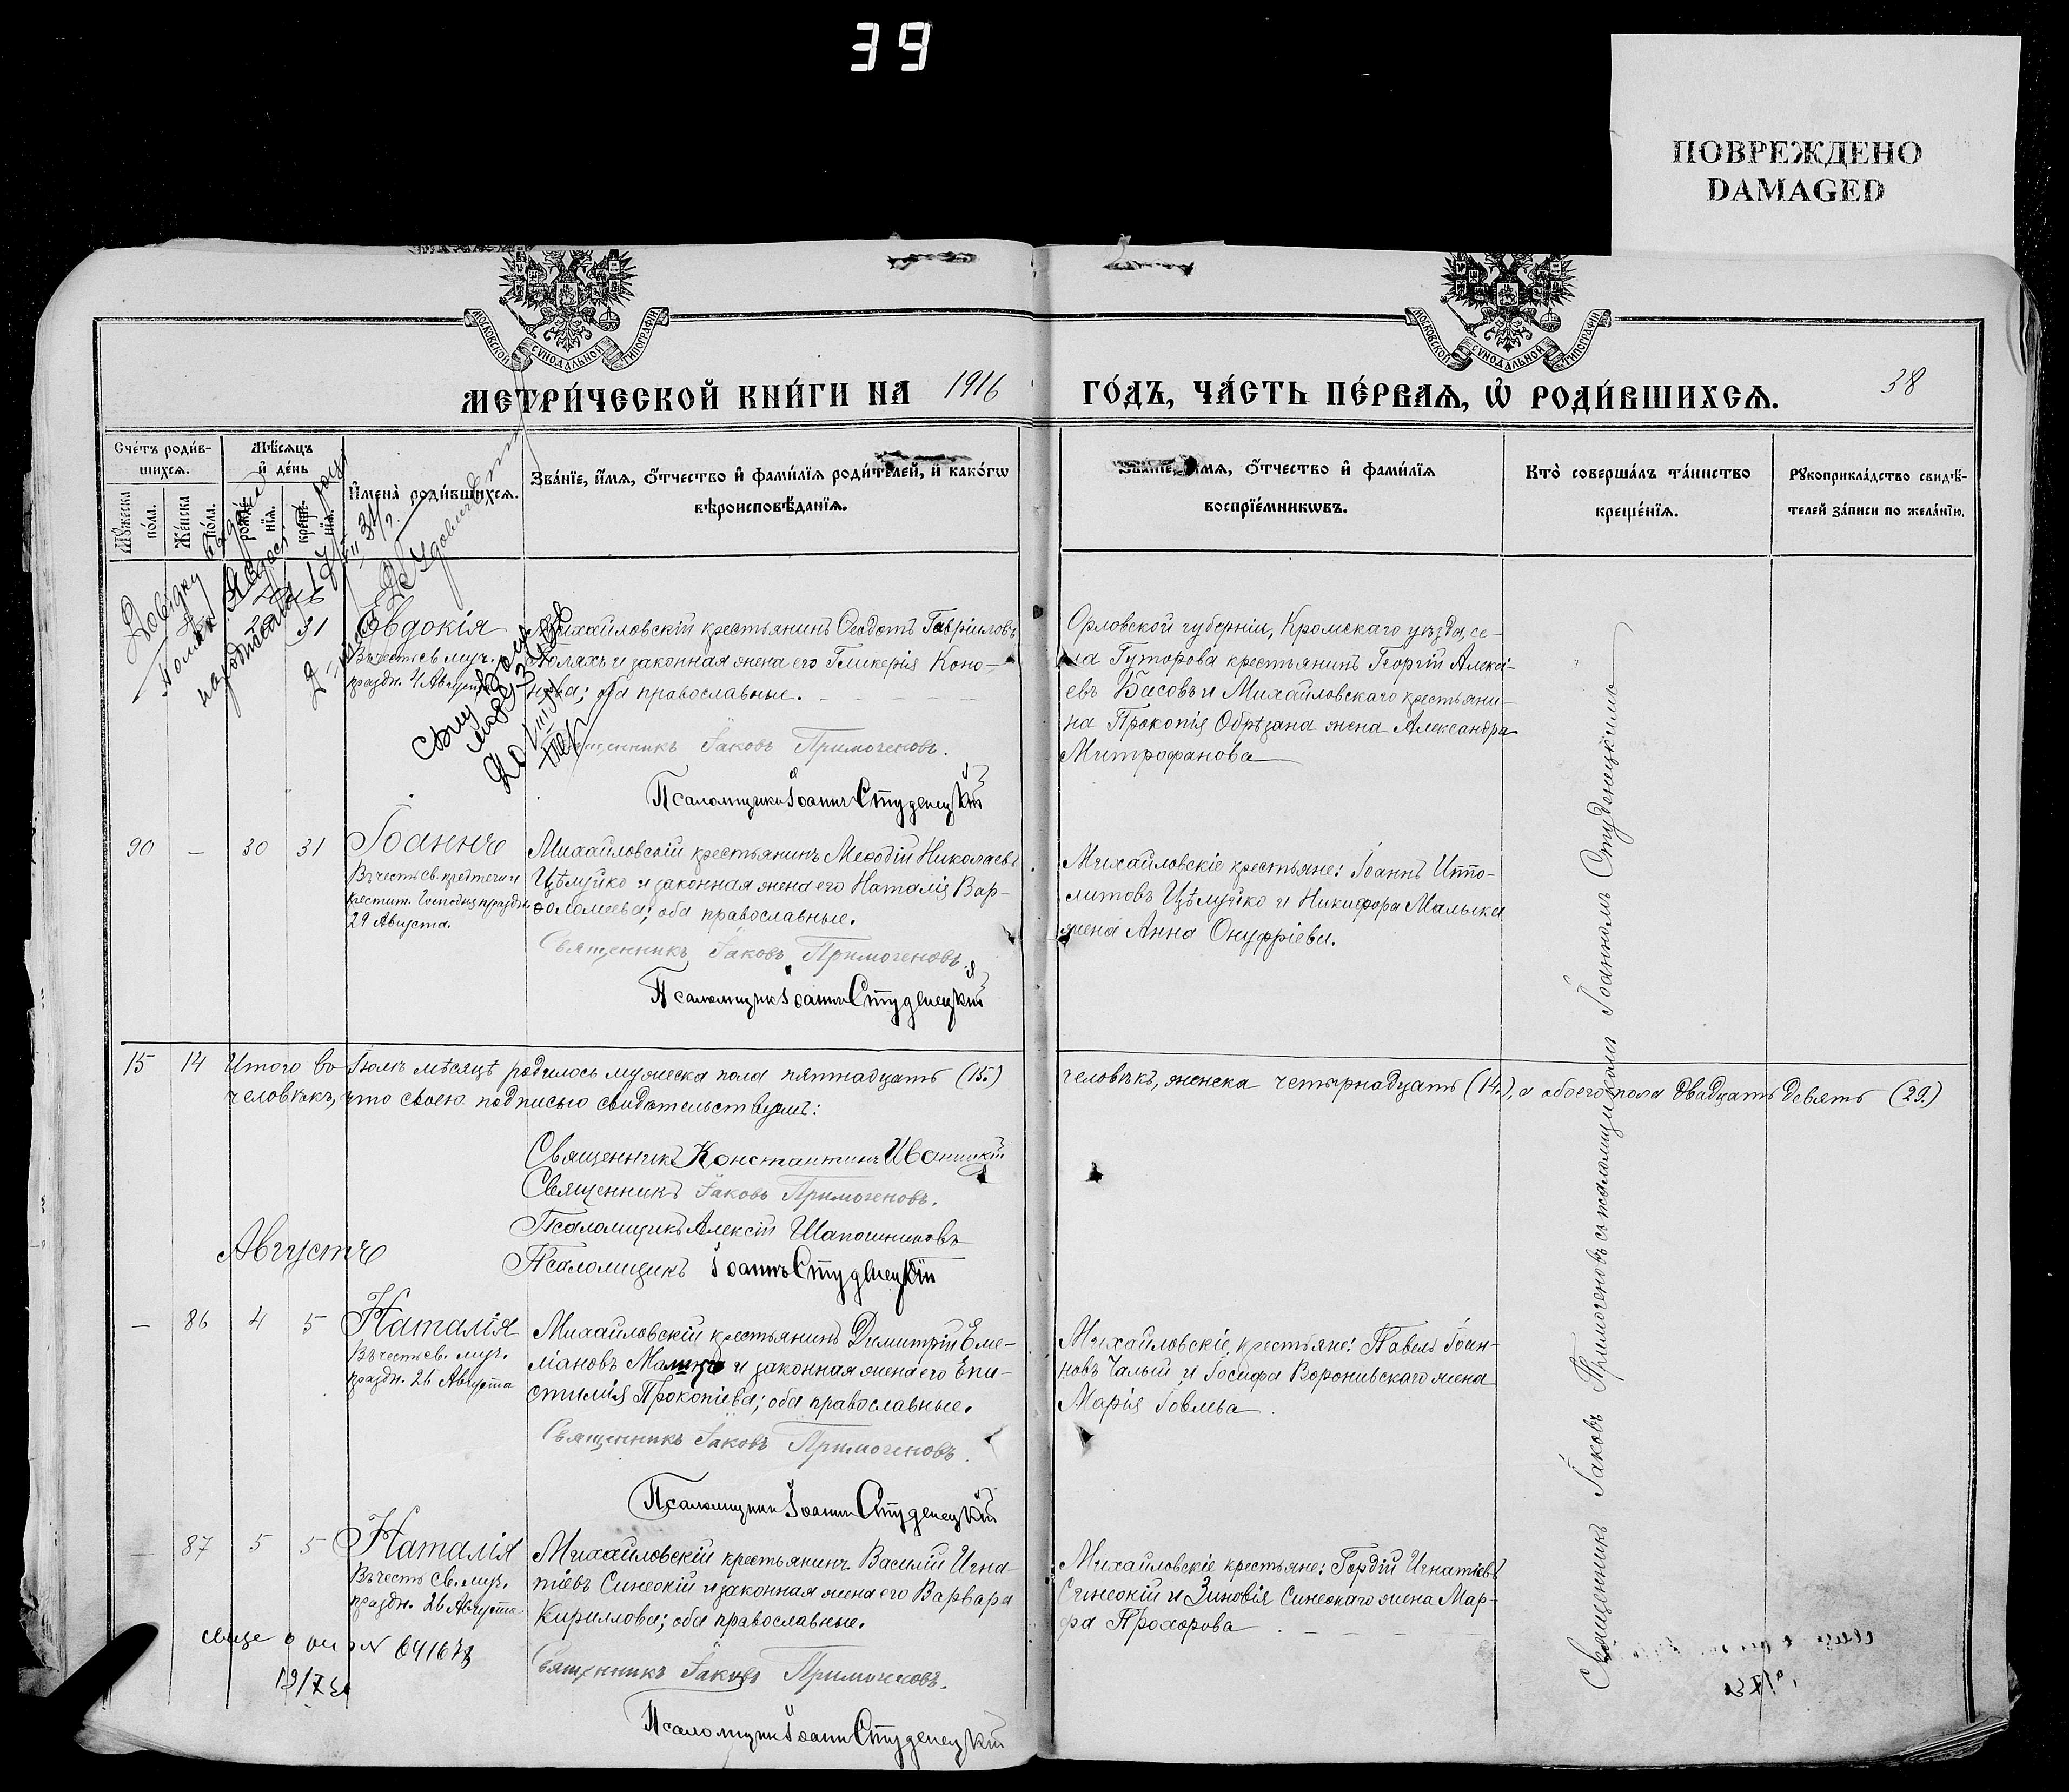 39
ПОВРЕЖДЕНО
DAMAGED
МОСКОВСКОЙ СУНОДАЛЬНОЙ ТИПОГРАФІИ
МОСКОВСКОЙ СУНОДАЛЬНОЙ ТИПОГРАФІИ
МЕТРИ́ЧЕСКОЙ КНИ́ГИ НА 1916 ГО́ДЪ, ЧА́СТЬ ПЕ́РВАЯ, Ѡ РОДИ́ВШИХСЯ.
38
Сче́тъ роди́в-
шихся.
Мѣ́сяцъ
и де́нь
Му́жеска
по́ла.
Же́нска
по́ла.
рожде́
нія.
креще́
нія.
И҆мена̀ роди́вшихся.
Зва́ніе, и҆́мя, ѻ҆́тчество и҆ фами́лїя роди́телей, и҆ како́гѡ
вѣроисповѣ́данїя.
и҆́мя, ѻ҆́тчество и҆ фами́лїя
воспрїе́мникѡвъ.
Кто̀ соверша́лъ та́инство
креще́нїя.
Рꙋкоприкла́дство свидѣ́-
телей за́писи по жела́нїю.
31 Евдокія
Въ честь св. муч.
праздн. 4 Августа
Михайловскій крестьянинъ Ѳеодотъ Гавріиловъ
и законная жена его Гликерія Коно-
нова; оба православные.
Священникъ Іаковъ Примогеновъ.
Псаломщикъ Іоаннъ Студенецкій
Орловской губерніи, Кромскаго уѣзда, се-
ла Гуторова крестьянинъ Георгій Алексі-
евъ Басовъ и Михайловскаго крестьяни-
на Прокопія Обрѣзана жена Александра
Митрофанова
90 — 30 31 Іоаннъ
Въ честь св. предтечи и
крестит. Господня праздн.
29 Августа.
Михайловскій крестьянинъ Меѳодій Николаевъ
Цѣлуйко и законная жена его Наталія Вар-
ѳоломеева; оба православные.
Священникъ Іаковъ Примогеновъ.
Псаломщикъ Іоаннъ Студенецкій
Михайловскіе крестьяне: Іоаннъ Иппо-
литовъ Цѣлуйко и Никифора Малыка
жена Анна Онуфріева.
15 14 Итого въ Іюлѣ мѣсяцѣ родилось мужеска пола пятнадцать (15.)
человѣкъ, женска четырнадцать (14.), а обоего пола двадцать девять (29.)
человѣкъ, что своею подписью свидѣтельствуемъ:
Священникъ Константинъ Иваницкій
Священникъ Іаковъ Примогеновъ.
Псаломщикъ Алексій Шапошниковъ
Псаломщикъ Іоаннъ Студенецкій
Августъ
— 86 4 5 Наталія
Въ честь св. муч.
праздн. 26 Августа
Михайловскій крестьянинъ Димитрій Еме-
ліановъ и законная жена его Епи-
стимія Прокопіева; оба православные.
Священникъ Іаковъ Примогеновъ.
Псаломщикъ Іоаннъ Студенецкій
Михайловскіе крестьяне: Павелъ Іоан-
новъ Чалый и Іосифа Воронивскаго жена
Марія Іовлева
— 87 5 5 Наталія
Въ честь св. муч.
праздн. 26 Августа
Михайловскій крестьянинъ Василій Игна-
тіевъ Синеокій и законная жена его Варвара
Кириллова; оба православные.
Священникъ Іаковъ Примогеновъ.
Псаломщикъ Іоаннъ Студенецкій
Михайловскіе крестьяне: Гордій Игнатіевъ
Синеокій и Зиновія Синеокаго жена Мар-
фа Прохорова
Священникъ Іаковъ Примогеновъ съ псаломщикомъ Іоанномъ Студенецкимъ